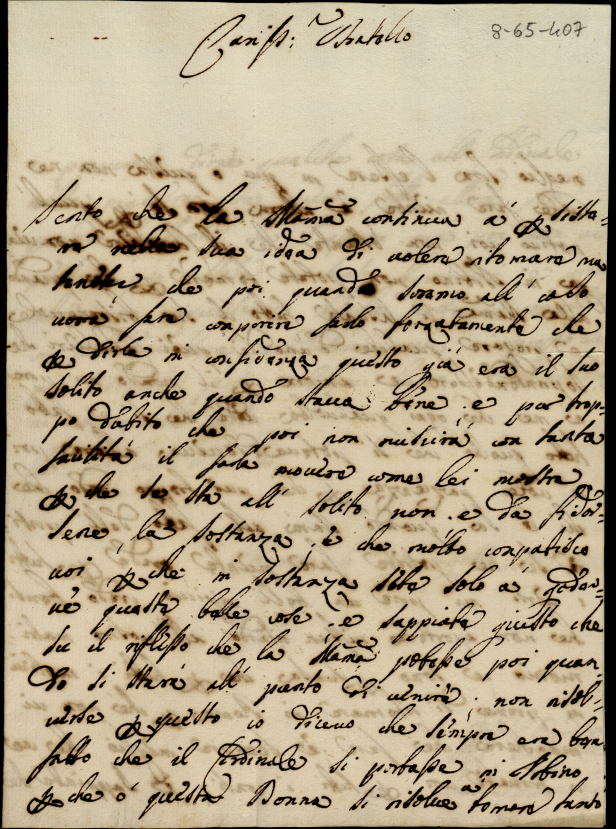 8-65-407
Cariss.mo Fratello
Sento che la Mamma continua á ꝑsista=
re nella sua idea di volere ritornare ma
che poi quando saremo all' caso
vorrá fare farlo forzatamente che
ꝑ dirla in confidenza questo giá era il suo
solito anche quando stava bene. e pur trop=
po dubito che poi non riuscirá con tanta
facilitá il farla movere come lei mostra
ꝑche se sta all' solito non. e da fidar=
sene, la sostanza, è che molto compatisco
voi ꝑche in sostanza sete solo á goder=
ve queste belle cose. e sappiate giusto che
su il riflesso che la Mamma potesse poi quan=
do si stará all' punto di venire, non risol=
verse ꝑ questo io dicevo che sempre era ben
fatto che il Cardinale si portasse in Urbino
ꝑche ó questa Donna si risolve a tornare